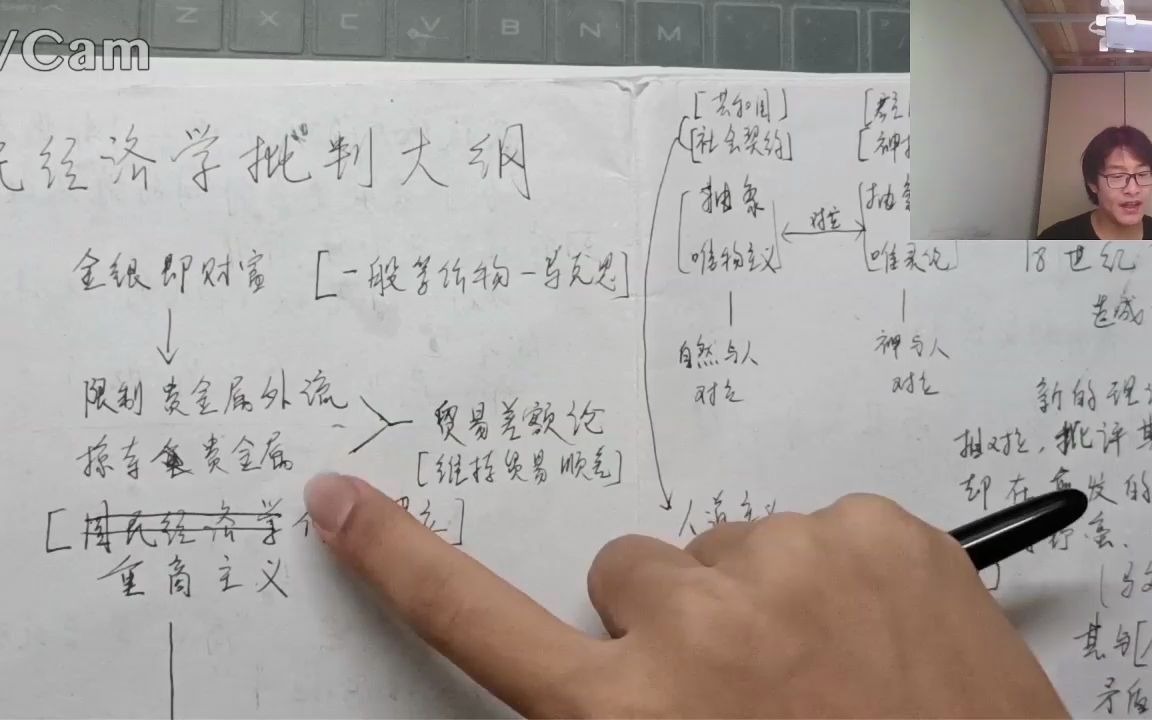 /Cam
Z X C V B N M
民经济学批判大纲
金银即财富 [一般等价物-马克思]
↓
限制贵金属外流
掠夺贵金属
贸易差额论
[维持贸易顺差]
[国民经济学
重商主义
[共和国]
[社会契约]
抽象
唯物主义
对立
自然与人
对立
人道主义
[神
抽象
唯灵论
神与人
对立
18世纪
造成
新的理
对立，批评其
却在愈发的
其与[
矛盾